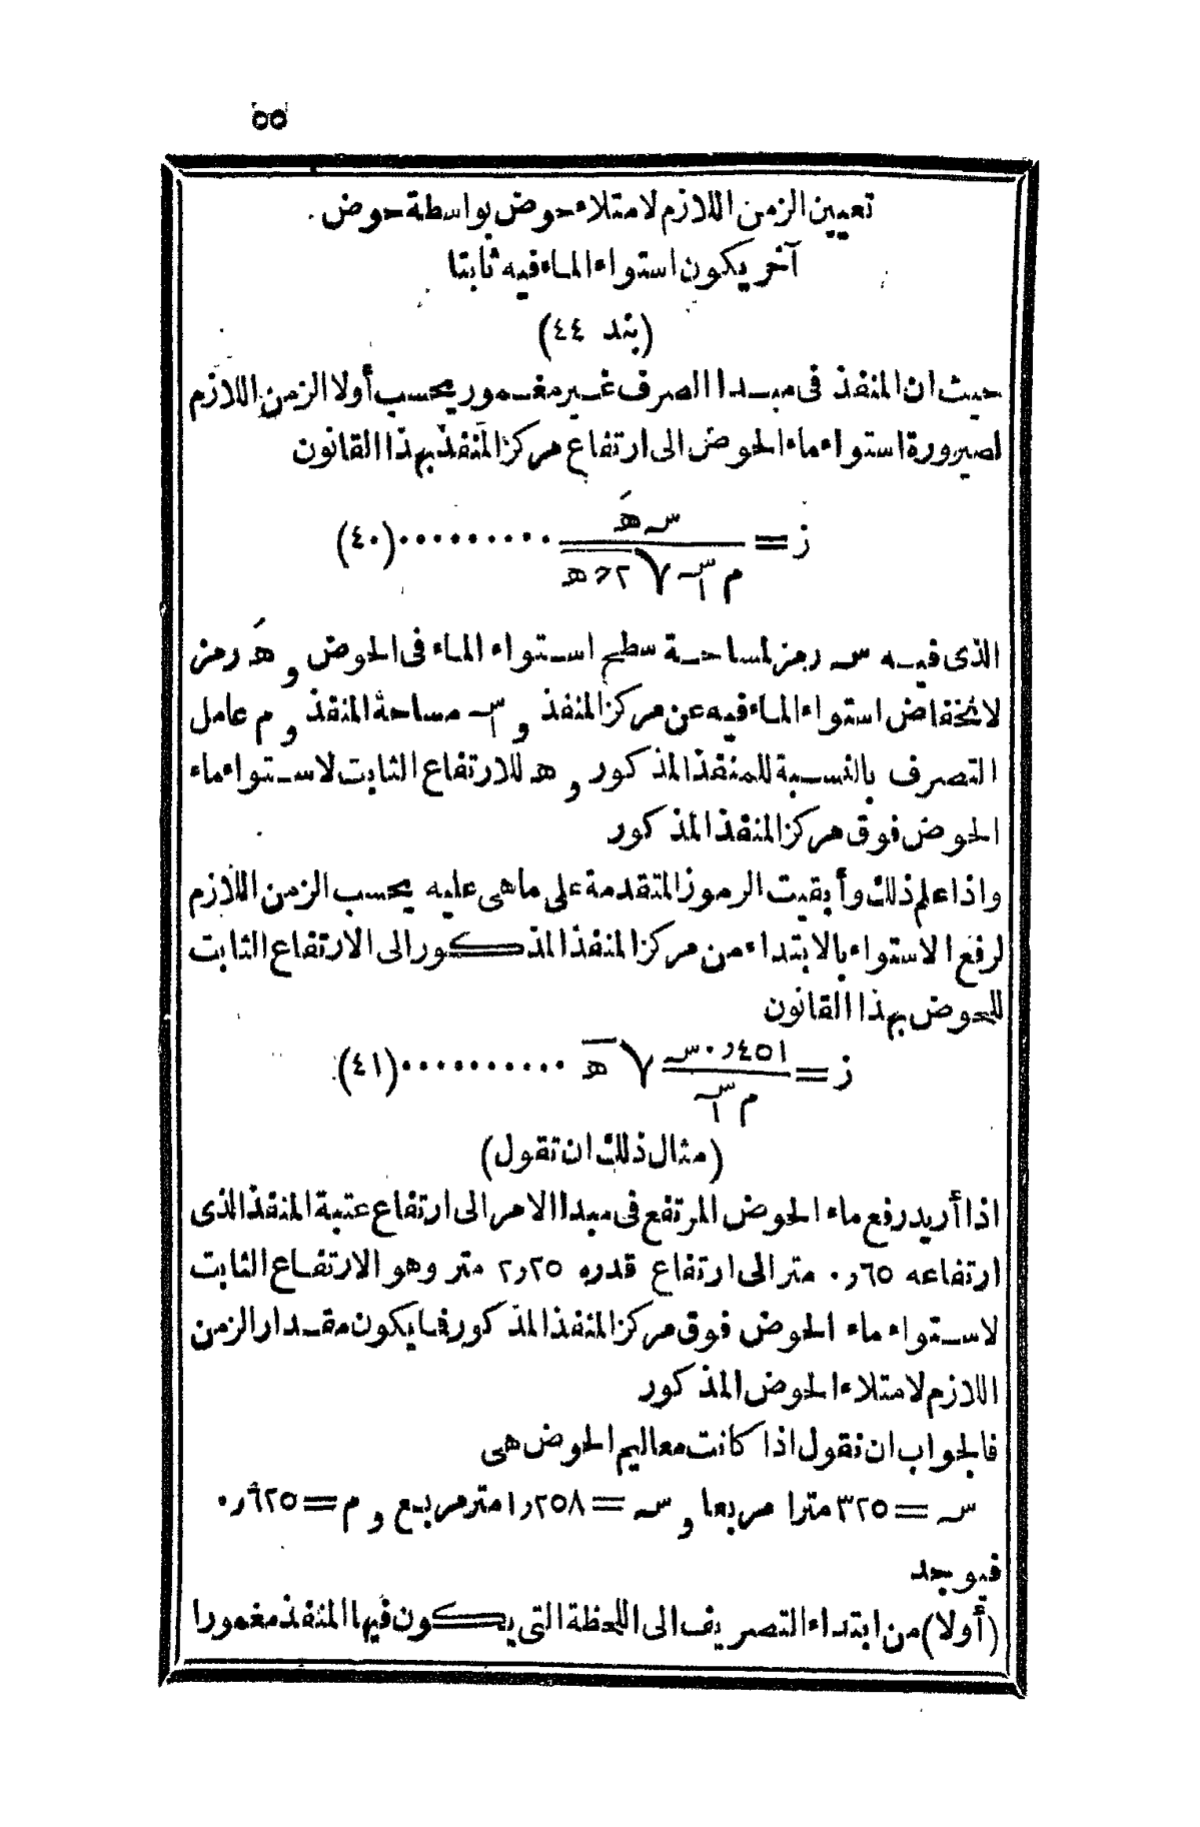 ٥٥
تعيين الزمن اللازم لامتلاء حوض بواسطة حوض
آخر يكون استواء الماء فيه ثابتا
(بند ٤٤)
حيث ان المنفذ فى مبدا الصرف غير مغمور يحسب أولا الزمن اللازم
لصيرورة استواء ماء الحوض الى ارتفاع مركز المنفذ بهذا القانون
ز = س هَ / م س/١ √٢حھ ..........(٤٠)
الذى فيه س رمز لمساحة سطح استواء الماء فى الحوض و هَ رمز
لانخفاض استواء الماء فيه عن مركز المنفذ و س/١ مساحة المنفذ و م عامل
التصرف بالنسبة للمنفذ المذكور و ھ للارتفاع الثابت لاستواء ماء
الحوض فوق مركز المنفذ المذكور
واذا علم ذلك وأبقيت الرموز المتقدمة على ماهى عليه يحسب الزمن اللازم
لرفع الاستواء بالابتداء من مركز المنفذ المذكور الى الارتفاع الثابت
للحوض بهذا القانون
ز = ٤٥١ر٠ س / م س/١ √ھ ...........(٤١)
(مثال ذلك ان تقول)
اذا أريد رفع ماء الحوض المرتفع فى مبدا الامر الى ارتفاع عتبة المنفذ الذى
ارتفاعه ٦٥ر٠ متر الى ارتفاع قدره ٢٥ر٢ متر وهو الارتفاع الثابت
لاستواء ماء الحوض فوق مركز المنفذ المذكور فما يكون مقدار الزمن
اللازم لامتلاء الحوض المذكور
فالجواب ان نقول اذا كانت معاليم الحوض هى
س = ٣٢٥ مترا مربعا و س = ٢٥٨ر١ متر مربع و م = ٦٢٥ر٠
فيوجد
(أولا) من ابتداء التصريف الى اللحظة التى يكون فيها المنفذ مغمورا